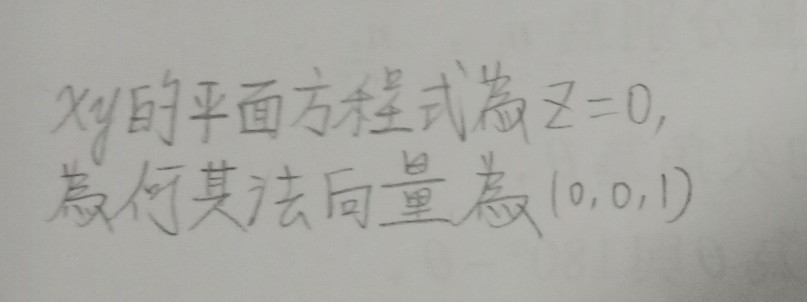 xy的平面方程式為z=0,
為何其法向量為(0,0,1)